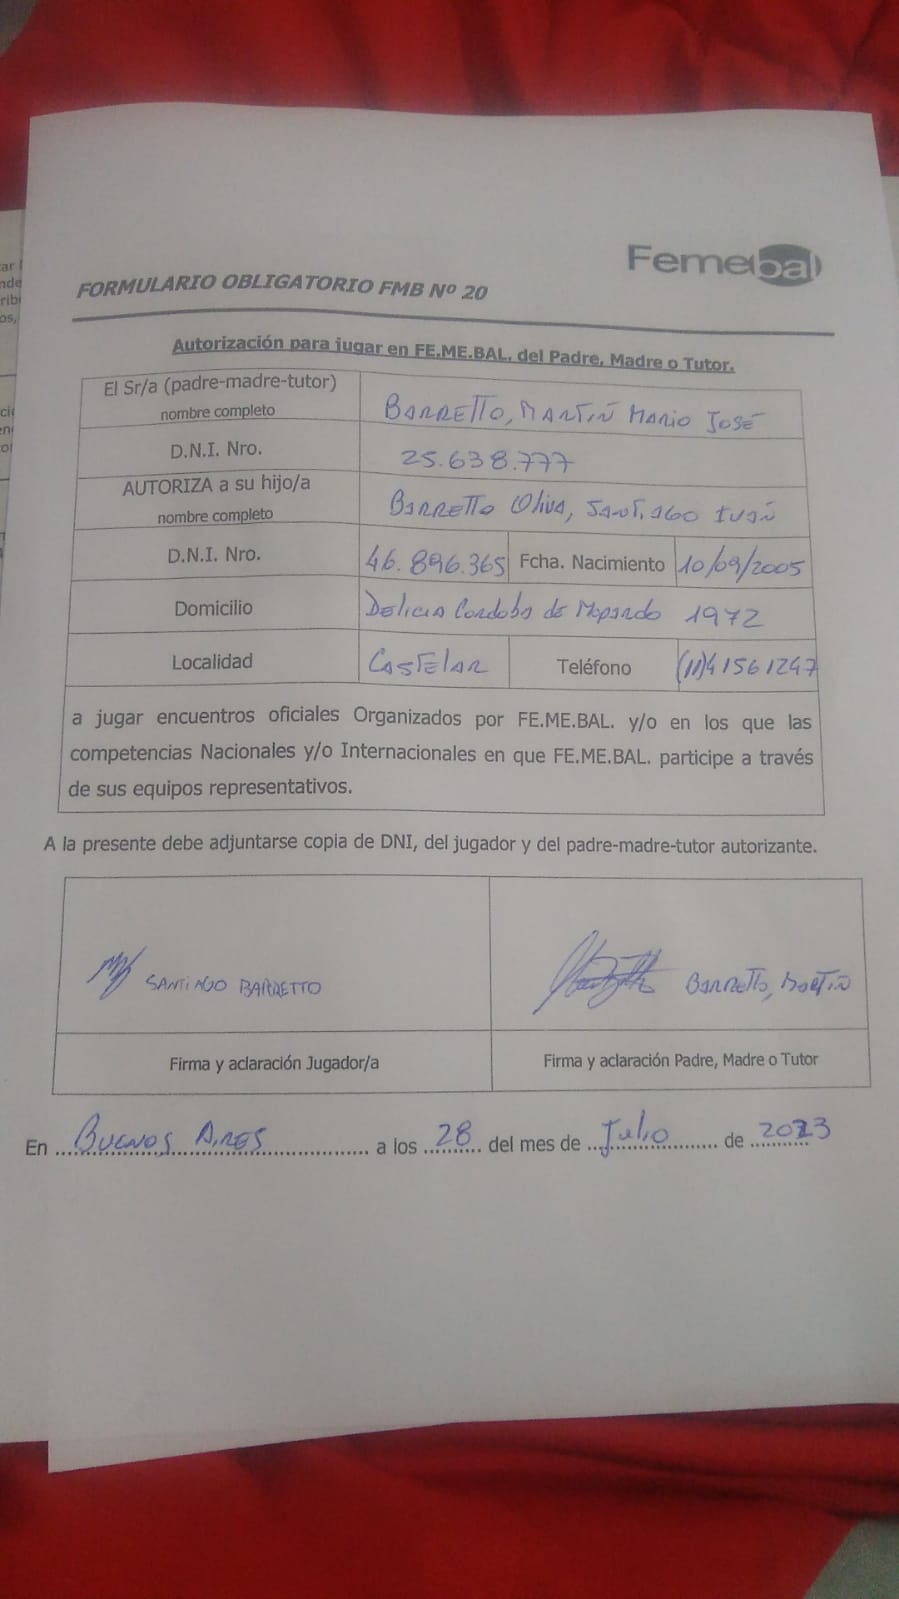 Femebal
FORMULARIO OBLIGATORIO FMB Nº 20
Autorización para jugar en FE.ME.BAL. del Padre, Madre o Tutor.
El Sr/a (padre-madre-tutor)
nombre completo
BARRETTO, MARTIÑ MARIO JOSÉ
D.N.I. Nro. 25.638.777
AUTORIZA a su hijo/a
nombre completo
BARRETTO Oliva, SANTIAGO IVAÑ
D.N.I. Nro. 46.896.365 Fcha. Nacimiento 10/09/2005
Domicilio Delicia Cordoba de 1972
Localidad CASTELAR Teléfono (11)41561247
a jugar encuentros oficiales Organizados por FE.ME.BAL. y/o en los que las
competencias Nacionales y/o Internacionales en que FE.ME.BAL. participe a través
de sus equipos representativos.
A la presente debe adjuntarse copia de DNI, del jugador y del padre-madre-tutor autorizante.
SANTIAGO BARRETTO BARRETTO, MARTIÑ
Firma y aclaración Jugador/a Firma y aclaración Padre, Madre o Tutor
En BUENOS AIRES a los 28 del mes de Julio de 2023